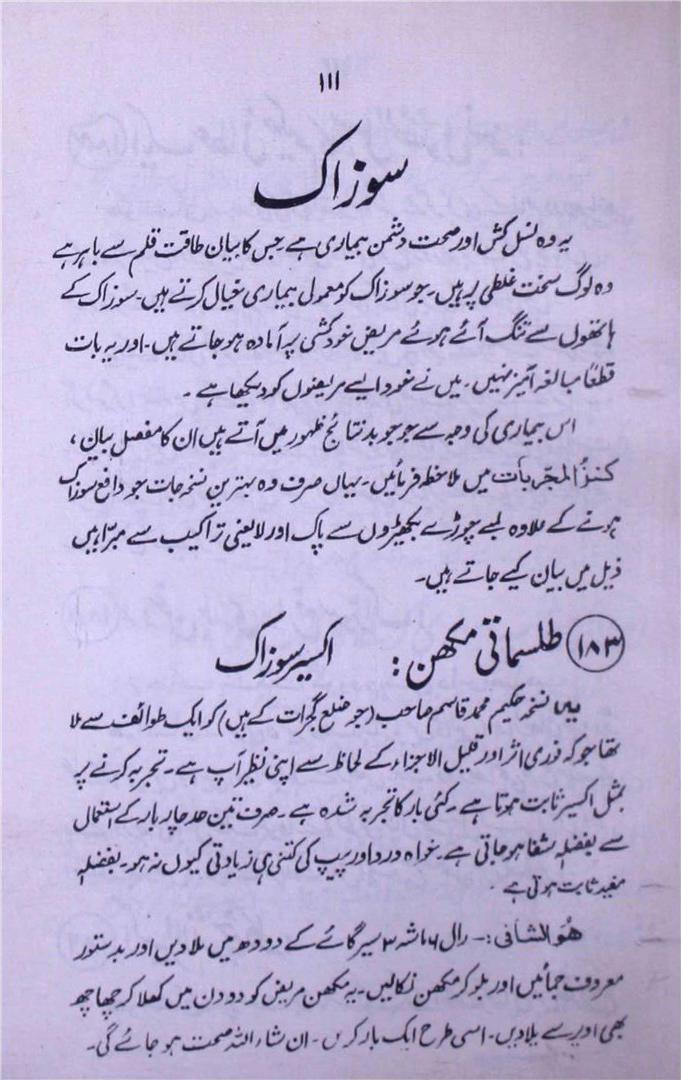 ۱۱۱
سوزاک
یہ وہ نسل کش اور صحت دشمن بیماری ہے جس کا بیان طاقت قلم سے باہر ہے
وہ لوگ سخت غلطی پر ہیں۔ جو سوزاک کو معمولی بیماری خیال کرتے ہیں۔ سوزاک کے
ہاتھوں سے تنگ آئے ہوئے مریض خودکشی پر آمادہ ہو جاتے ہیں۔ اور یہ بات
قطعاً مبالغہ آمیز نہیں۔ میں نے خود ایسے مریضوں کو دیکھا ہے۔
اس بیماری کی وجہ سے جو جو بد نتائج ظہور میں آتے ہیں ان کا مفصل بیان،
کنزُ المجرّبات میں ملاحظہ فرمائیں۔ یہاں صرف وہ بہترین نسخہ جات جو دافع سوزاک
ہونے کے علاوہ لمبے چوڑے بکھیڑوں سے پاک اور لایعنی تراکیب سے مبرّا ہیں
ذیل میں بیان کیے جاتے ہیں۔
۱۸۳ طلسماتی مکھن: اکسیر سوزاک
یہ نسخہ حکیم محمد قاسم صاحب (جو ضلع گجرات کے ہیں) کو ایک طوائف سے ملا
تھا جو کہ فوری اثر اور قلیل الاجزاء کے لحاظ سے اپنی نظیر آپ ہے۔ تجربہ کرنے پر
مثل اکسیر ثابت ہوتا ہے۔ کئی بار کا تجربہ شدہ ہے۔ صرف تین حد چار بار کے استعمال
سے بفضلہٖ شفا ہو جاتی ہے۔ خواہ درد اور پیپ کی کتنی ہی زیادتی کیوں نہ ہو۔ بفضلہٖ
مفید ثابت ہوتی ہے۔
ھُوَ الشافی:۔ رال ۶ ماشہ ۳ سیر گائے کے دودھ میں ملا دیں اور بدستور
معروف جمائیں اور بلو کر مکھن نکالیں۔ یہ مکھن مریض کو دو دن میں کھلا کر چھاچھ
بھی اوپر سے پلا دیں۔ اسی طرح ایک بار کریں۔ ان شاء اللہ صحت ہو جائے گی۔